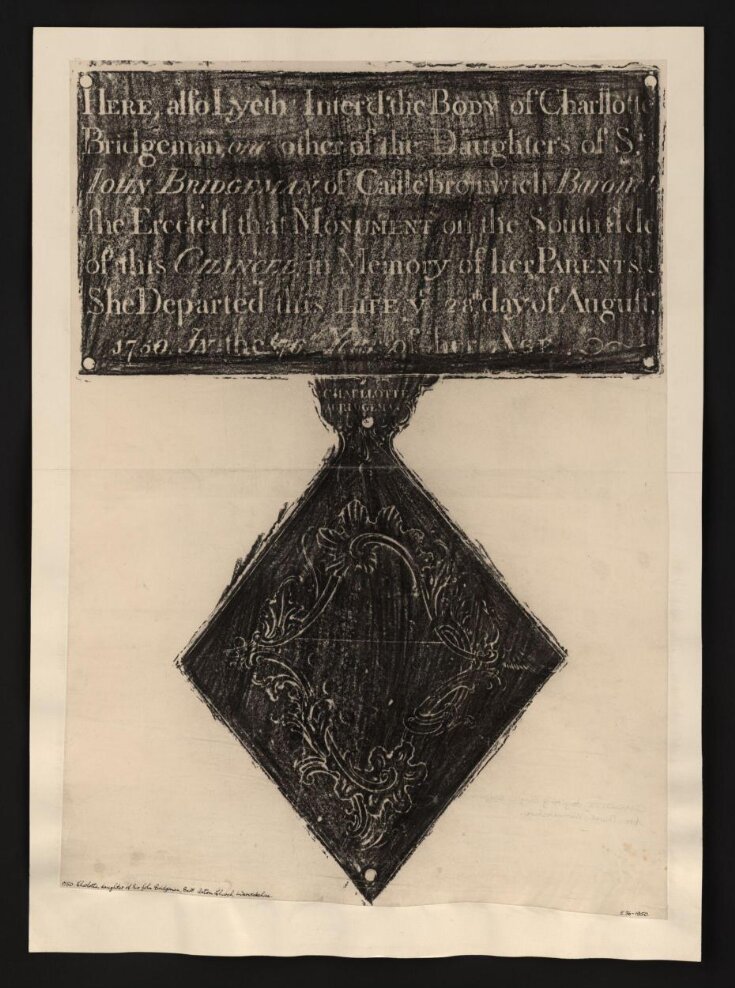 HERE, also Lyeth Interr'd the BODY of Charllotte
Bridgeman, one other of the Daughters of Sr.
IOHN BRIDGEMAN of Castlebromwich Baronet
she Erected that MONUMENT on the South side
of this CHANCEL in Memory of her PARENTS.
She Departed this LIFE ye 28th day of August,
1750. In the 76th Year of her AGE.
CHARLLOTTE
BRIDGEMAN
1750. Charlotte, daughter of Sir John Bridgeman, Bart. Aston Church, Warwickshire.